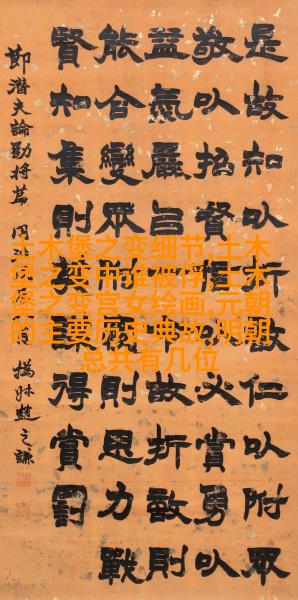 是故知㕥折敵仁㕥附眾
敬㕥招賢信㕥必賞勇㕥
益氣嚴㕥一令故折敵則
能合變眾附則思力戰
賢知集則英謀得賞罰
節潛夫論勸將篇
撝叔趙之謙
土木堡之变细节,土木
堡之变中谁被俘,土木
堡之变宫女绘画,元朝
的主要历史典故,明朝
总共有几位